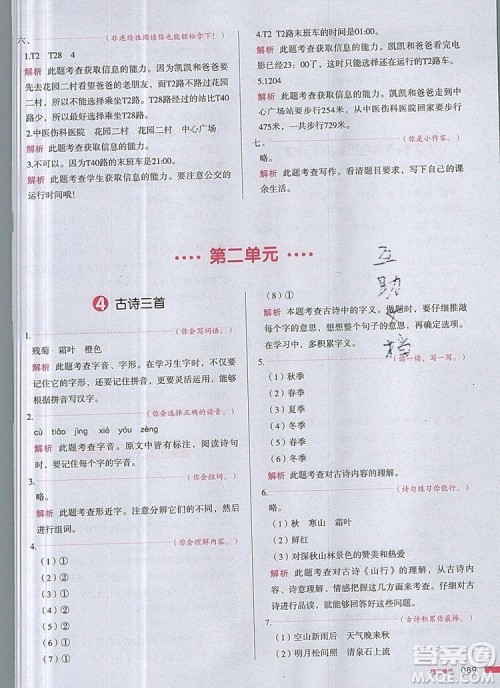 六、（非连续性阅读你也能轻松拿下！）
1.T2 T28 4
解析 此题考查获取信息的能力。因为凯凯和爸爸要
先去花园二村看望爸爸的老朋友，而T2路不路过花园
二村，所以不能选择乘坐T2路。T28路经过的站比T40
路少，所以最好选择乘坐T28路。
2.中医伤科医院 花园二村 花园二村 中心广场
解析 此题考查获取信息的能力。
3.不可以。因为T40路的末班车是21:00。
解析 此题考查学生获取信息的能力。要注意公交的
运行时间哦！
4.T2 T2路末班车的时间是01:00。
解析 此题考查获取信息的能力。凯凯和爸爸看完电
影已经23：00了，所以选择还在运行的T2路车。
5.1204
解析 此题考查获取信息的能力。凯凯和爸爸走到中
心广场站要步行254米，从中医伤科医院回家要步行
475米，一共要步行1204米。
七、（你是小作家。）
略。
解析 此题考查写作。看清题目要求，写下自己的课
余生活。
第二单元
4 古诗三首
1.（你会写词语。）
残菊 霜叶 橙色
解析 此题考查字音、字形。在学习生字时，不仅要
记住字形，还要记住字音，更要灵活运用，能够根
据拼音写汉字。
2.（你会选择正确的读音。）
cù tiǎo jìng xié yáo zéng
解析 此题考查字音。原文中大部分有标注，阅读诗句
时，一定要记忆每个字的字音。
3.（你会组词。）
略。
解析 此题考查形近字。注意分辨它们的不同，然后
进行组词。
4.（你会理解内容。）
（1）①
（2）①
（3）①
（4）①
（5）②
（6）①
（7）②
（8）①
解析 此题考查古诗中的字义。做题时，要仔细推敲
每个字的意思，想想整个句子的意思，再确定选项。
在平时，多积累字义。
5.（读一读，写一写。）
（1）秋季
（2）秋季
（3）夏季
（4）春季
（5）春季
解析 此题考查对古诗内容的理解。
6.（诗句练习你能行。）
（1）秋 寒山 霜叶
（2）鲜红
（3）对深秋山林景色的赞美和热爱
解析 此题考查对古诗《山行》的理解，从诗歌内